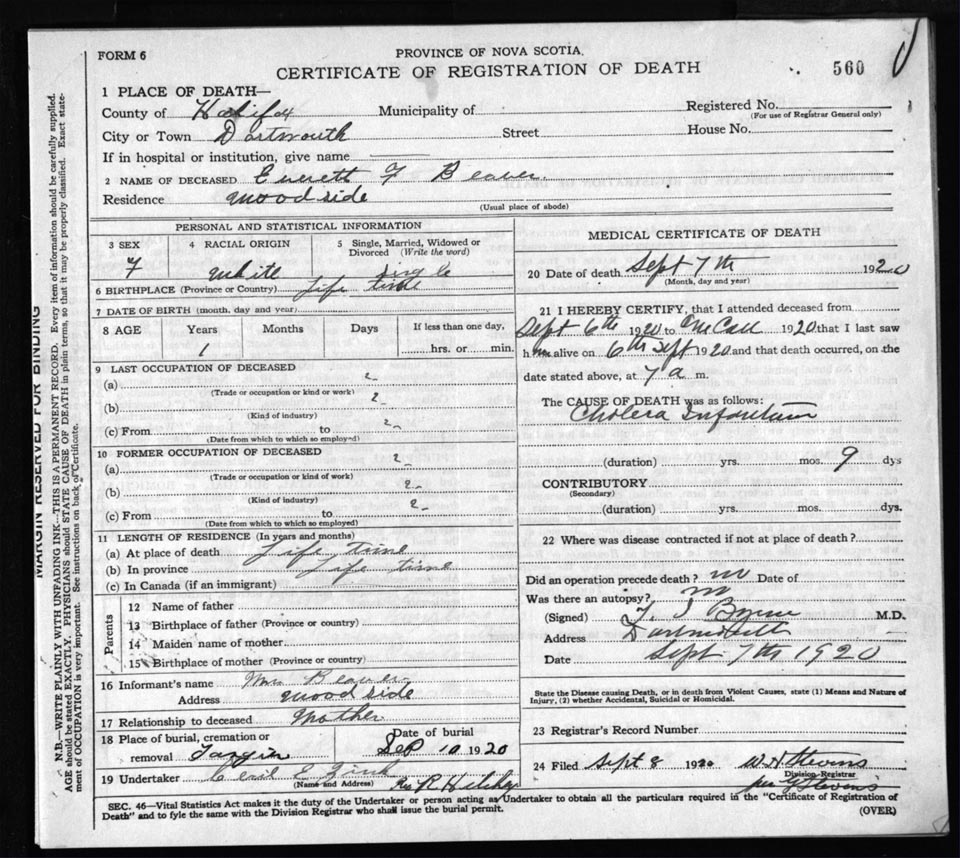 FORM 6
PROVINCE OF NOVA SCOTIA.
CERTIFICATE OF REGISTRATION OF DEATH
560
1 PLACE OF DEATH—
County of Halifax Municipality of Registered No.
(For use of Registrar General only)
City or Town Dartmouth Street House No.
If in hospital or institution, give name
2 NAME OF DECEASED Everett F Beaver
Residence Woodside
(Usual place of abode)
PERSONAL AND STATISTICAL INFORMATION
3 SEX 4 RACIAL ORIGIN 5 Single, Married, Widowed or Divorced (Write the word)
F White Single
6 BIRTHPLACE (Province or Country) Life time
7 DATE OF BIRTH (month, day and year)
8 AGE Years Months Days If less than one day,
1 hrs. or min.
9 LAST OCCUPATION OF DECEASED
(a)
(Trade or occupation or kind or work)
(b)
(Kind of industry)
(c) From to
(Date from which to which so employed)
10 FORMER OCCUPATION OF DECEASED
(a)
(Trade or occupation or kind of work)
(b)
(Kind of industry)
(c) From to
(Date from which to which so employed)
11 LENGTH OF RESIDENCE (In years and months)
(a) At place of death Life time
(b) In province Life time
(c) In Canada (if an immigrant)
Parents
12 Name of father
13 Birthplace of father (Province or country)
14 Maiden name of mother
15 Birthplace of mother (Province or country)
16 Informant's name Mrs Beaver
Address Woodside
17 Relationship to deceased Mother
18 Place of burial, cremation or removal Tangier
Date of burial Sep 10 1920
19 Undertaker
(Name and Address)
MEDICAL CERTIFICATE OF DEATH
20 Date of death Sept 7th 1920
(Month, day and year)
21 I HEREBY CERTIFY, that I attended deceased from
Sept 6th 1920 to 1920 that I last saw
him alive on 6th Sept 1920 and that death occurred, on the
date stated above, at 7 a m.
The CAUSE OF DEATH was as follows:
Cholera Infantum
(duration) yrs. mos. 9 dys
CONTRIBUTORY
(Secondary)
(duration) yrs. mos. dys.
22 Where was disease contracted if not at place of death?
Did an operation precede death? no Date of
Was there an autopsy? no
(Signed) M.D.
Address Dartmouth
Date Sept 7th 1920
State the Disease causing Death, or in death from Violent Causes, state (1) Means and Nature of
Injury, (2) whether Accidental, Suicidal or Homicidal.
23 Registrar's Record Number
24 Filed Sept 8 1920 W H Stevens
Division Registrar
per G Stevens
SEC. 46—Vital Statistics Act makes it the duty of the Undertaker or person acting as Undertaker to obtain all the particulars required in the "Certificate of Registration of
Death" and to fyle the same with the Division Registrar who shall issue the burial permit.
(OVER)
MARGIN RESERVED FOR BINDING
N.B.—WRITE PLAINLY WITH UNFADING INK—THIS IS A PERMANENT RECORD. Every item of information should be carefully supplied.
AGE should be stated EXACTLY. PHYSICIANS should STATE CAUSE OF DEATH in plain terms, so that it may be properly classified. Exact state-
ment of OCCUPATION is very important. See instructions on back of Certificate.